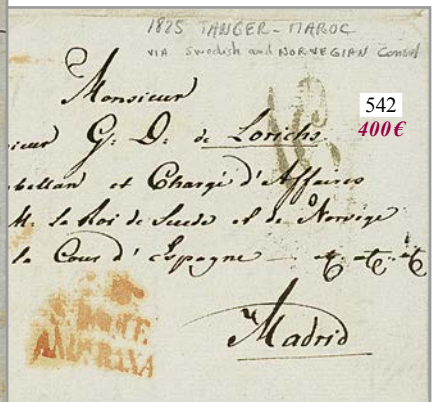 1825 TANGER - MAROC
VIA Swedish and NORWEGIAN Consul
542
400€
Monsieur
sieur G. D. de Lorichs
bellan et Chargé d'Affaires
M. le Roi de Suede et de Norvége
la Cour d'Espagne — &. &. &
S. ROQUE
ANDA BAXA
Madrid